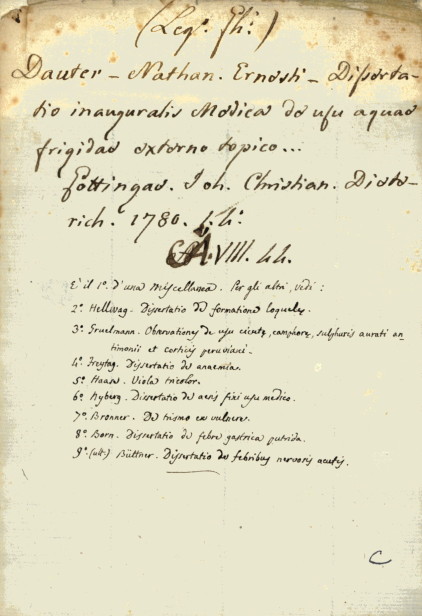 (Leg.º Gh.)
Dauter – Nathan. Ernesti – Dissorta-
tio inauguralis Medica de usu aquae
frigidae externo topico...
Gottingae. Joh. Christian. Dieto-
rich. 1780. in 4.º
VIII. 44.
È il 1º. d'una Miscellanea. Per gli altri, vedi :
2º. Hellwag. Dissertatio de formatione loquelę.
3º. Gruelmann. Observationes de usu cicutę, camphorę, sulphuris aurati an-
timonii et corticis peruviani.
4º. Freytag. Dissertatio de anaemia.
5º. Haase. Viola tricolor.
6º. Nyberg. Dissertatio de aeris fixi usu medico.
7º. Bronner. De trismo ex vulnere.
8º. Born. Dissertatio de febre gastrica putrida.
9º. (ult.) Büttner. Dissertatio de febribus nervosis acutis.
C